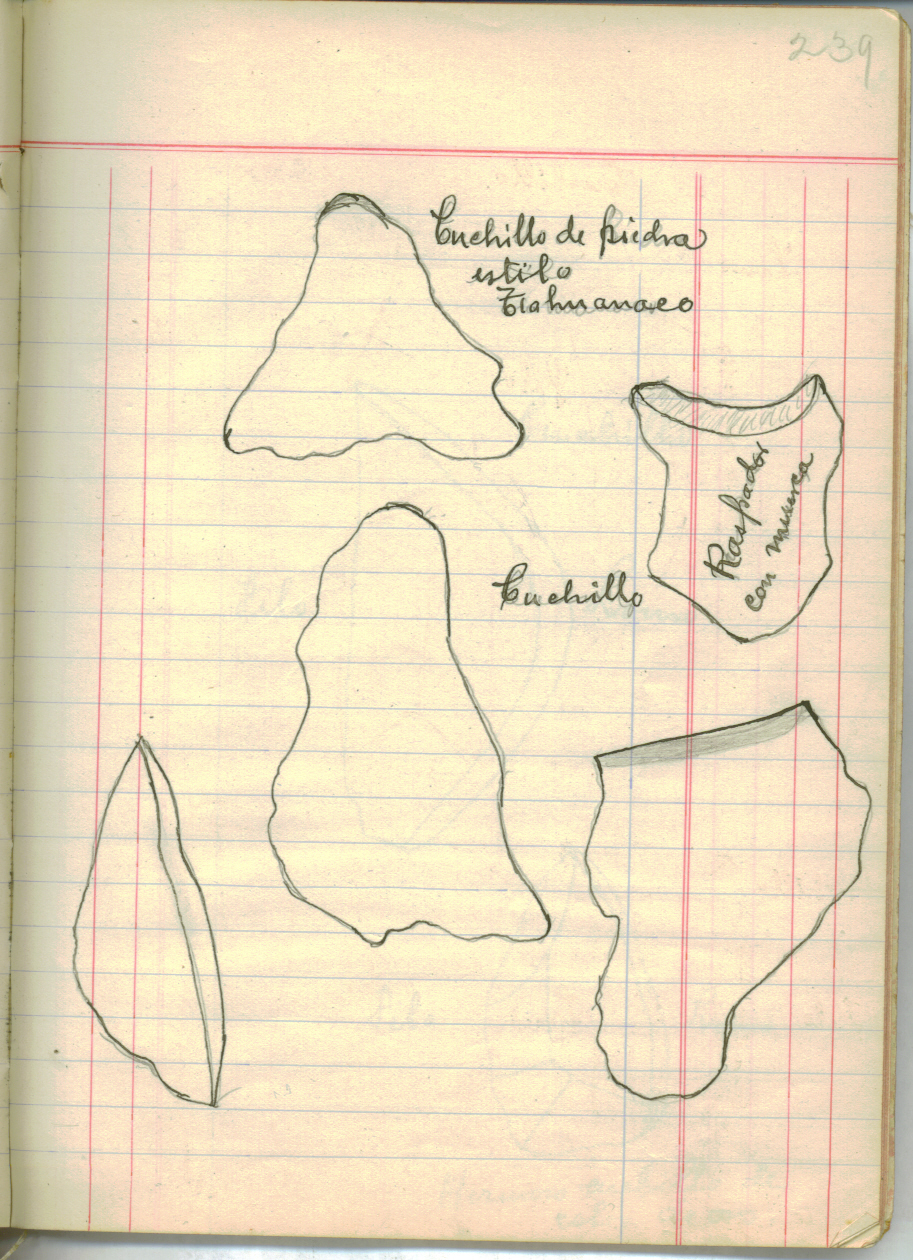 239
Cuchillo de piedra
estilo
Tiahuanaco
Raspador
con muesca
Cuchillo